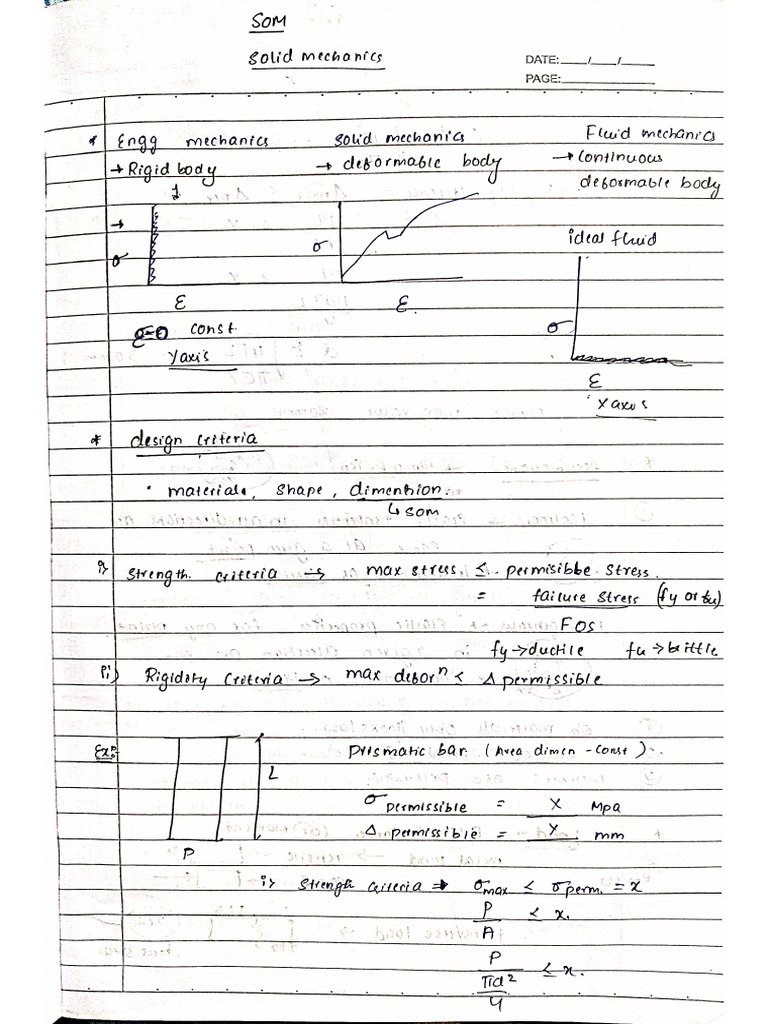 SOM
Solid mechanics
DATE:___/___/___
PAGE:___________
* Engg mechanics solid mechanics Fluid mechanics
→ Rigid body → deformable body → continuous
deformable body
σ ε
σ ε
ideal fluid
σ ε
ε const
Y axis
X axis
* design criteria
• materials, shape, dimension.
↳ som
i) strength criteria → max stress ≤ permisible stress.
= failure stress (fy or fu)
FOS
fy → ductile fu → brittle
ii) Rigidity criteria → max deforⁿ ≤ Δ permissible
Exp: Prismatic bar (Area dimen - const).
L
σ permissible = X Mpa
Δ permissible = Y mm
P
i) strength criteria → σmax ≤ σperm. = x
P/A ≤ x.
P/(πd²/4) ≤ x.